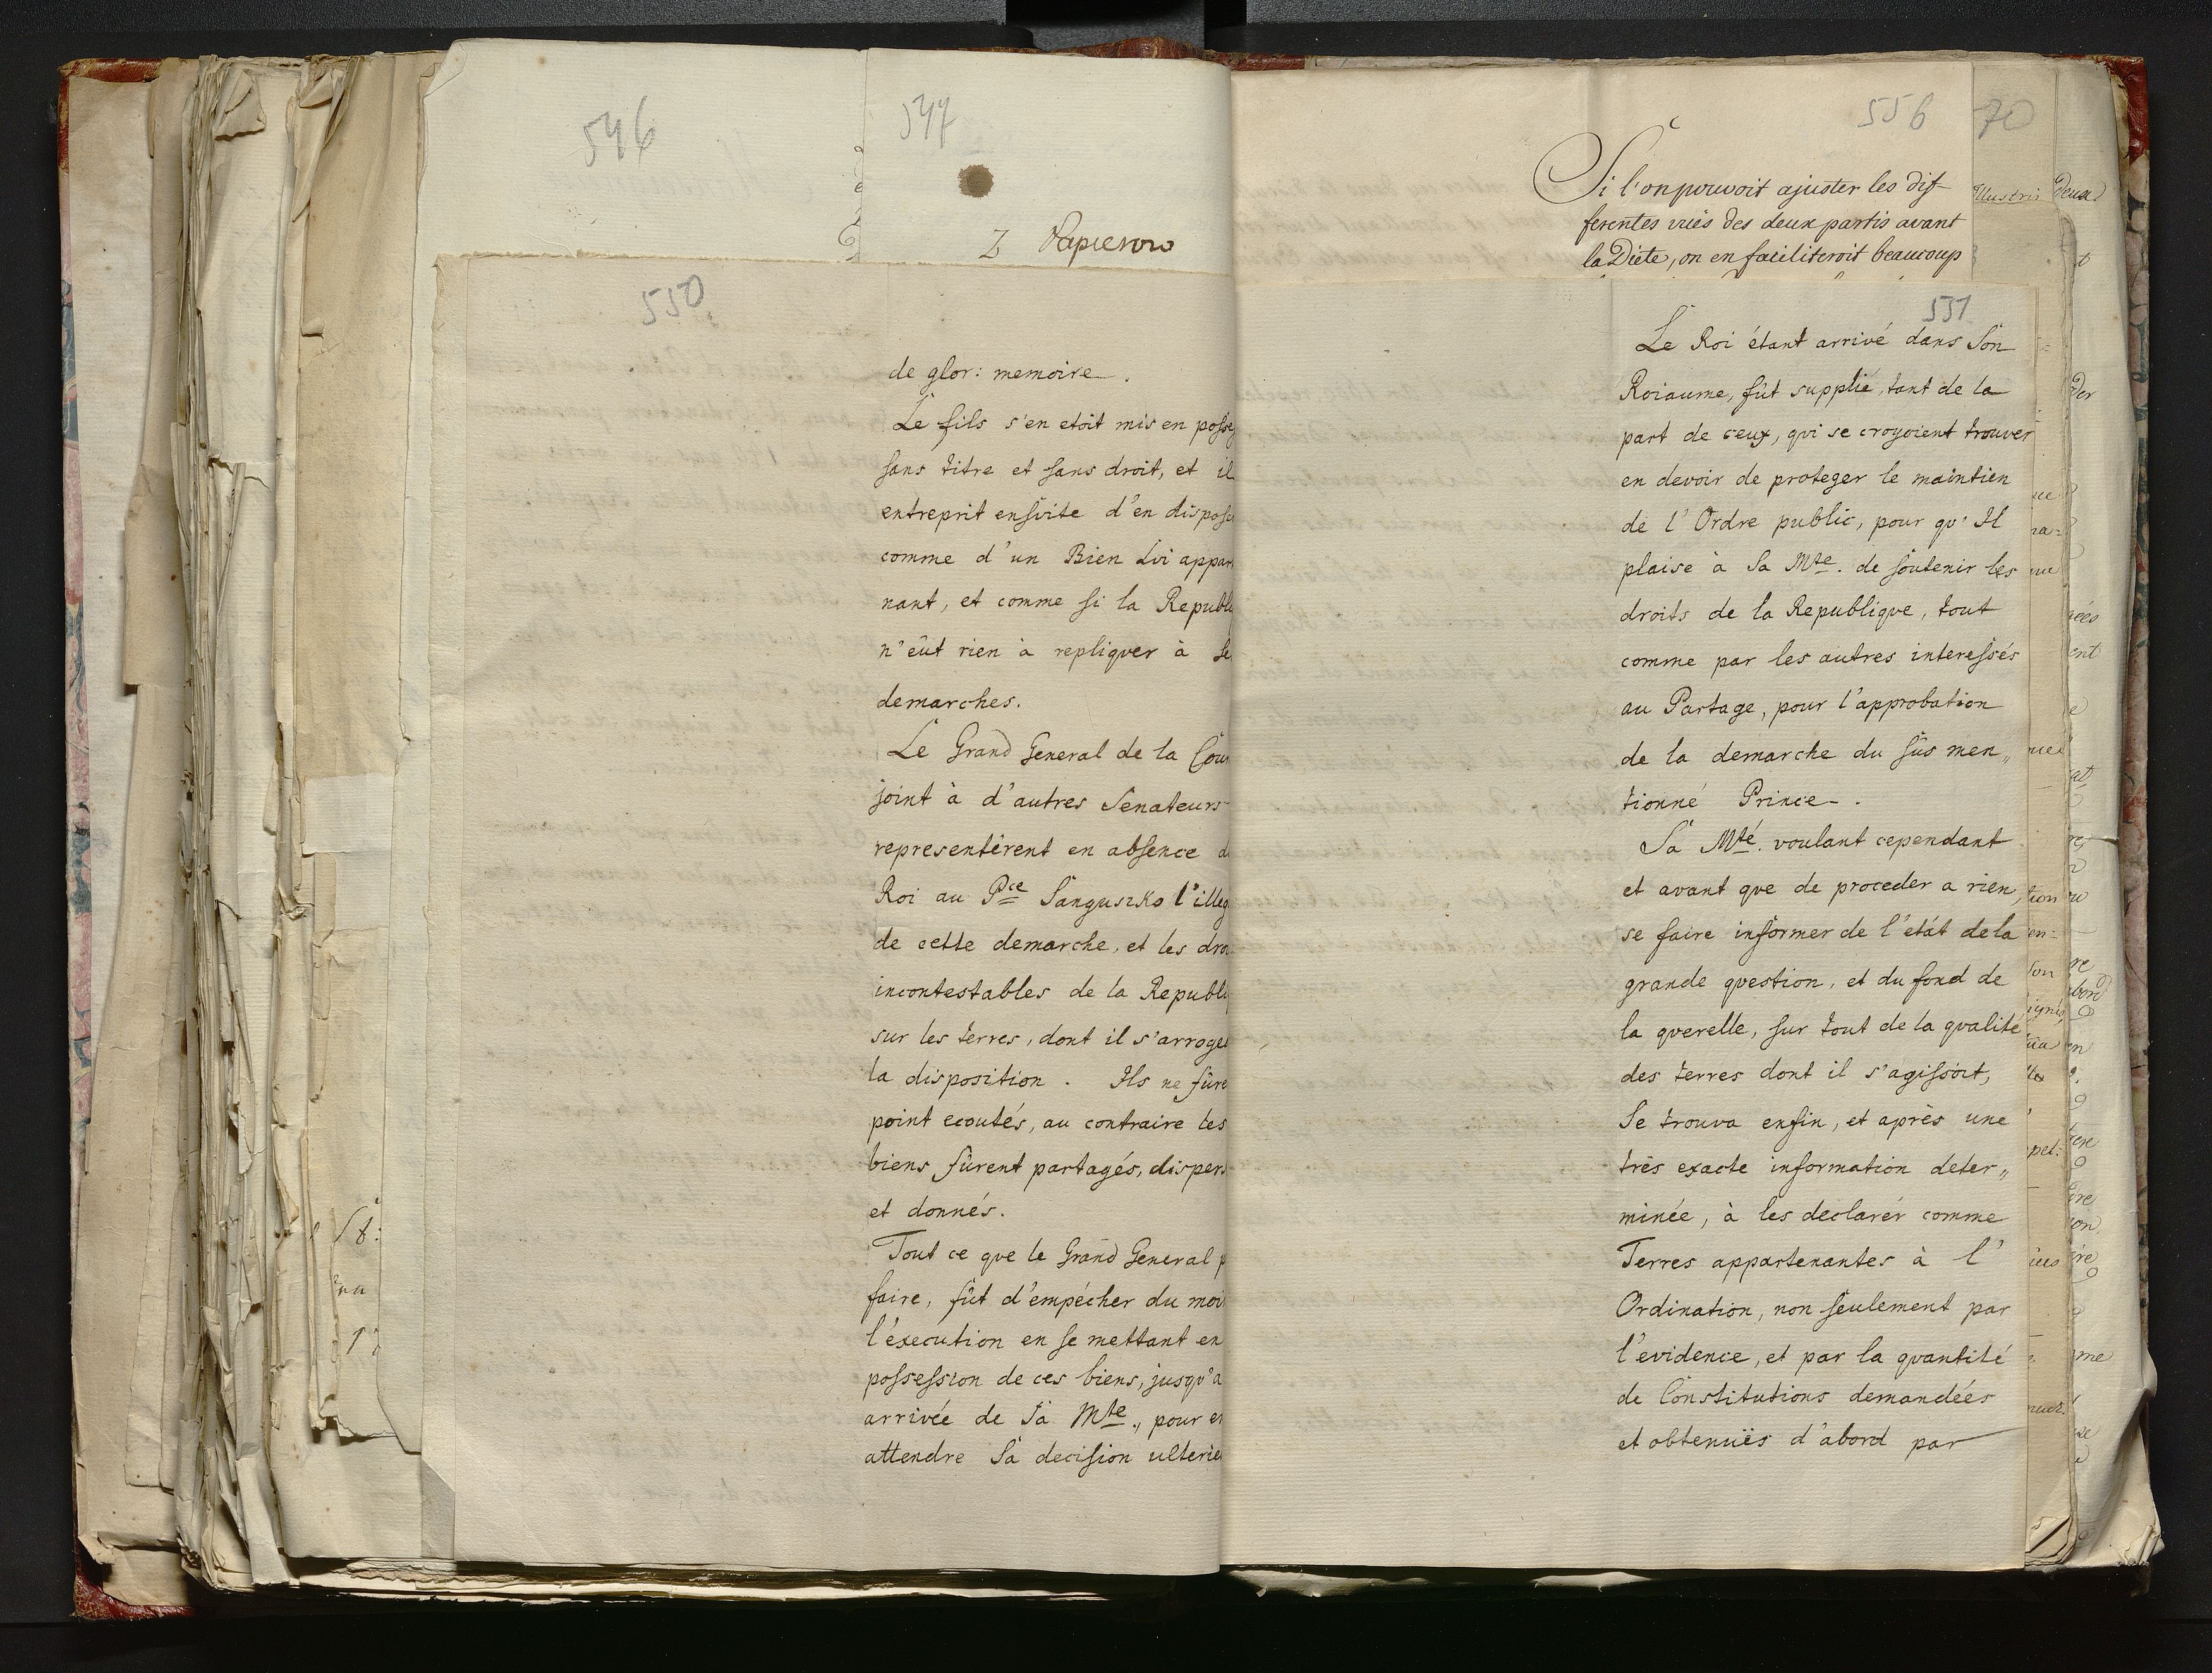 546
547
Z Papierow
550.
de glor: memoire.
Le fils s'en etoit mis en posse
sans titre et sans droit, et il
entreprit ensuite d'en dispose
comme d'un Bien Lui appar
nant, et comme si la Republi
n'eût rien à repliquer à se
demarches.
Le Grand General de la Cour
joint à d'autres Senateurs
representèrent en absence d
Roi au Pce Sanguszko l'illeg
de cette demarche, et les dro
incontestables de la Republi
sur les terres, dont il s'arroge
la disposition. Ils ne fûre
point ecoutés, au contraire les
biens fûrent partagés, dispers
et donnés.
Tout ce que le Grand General p
faire, fût d'empécher du moi
l'éxecution en se mettant en
possession de ces biens, jusqu'a
arrivée de Sa Mte., pour e
attendre Sa decision ulterie
556
70
Si l'on pouvoit ajuster les dif-
ferentes vuës des deux partis avant
la Diete, on en faciliteroit beaucoup
551
Le Roi étant arrivé dans Son
Roiaume, fût supplié, tant de la
part de ceux, qui se croyoient trouver
en devoir de proteger le maintien
de l'Ordre public, pour qu'Il
plaise à Sa Mte. de soutenir les
droits de la Republique, tout
comme par les autres interessés
au Partage, pour l'approbation
de la demarche du sus men„
tionné Prince.
Sa Mté. voulant cependant
et avant que de proceder a rien,
se faire informer de l'etát de la
grande question, et du fond de
la querelle, sur tout de la qualité
des terres dont il s'agissoit,
Se trouva enfin, et après une
très exacte information deter„
minée, à les declarér comme
Terres appartenantes à l'
Ordination, non seulement par
l'evidence, et par la quantité
de Constitutions demandées
et obtenuës d'abord par